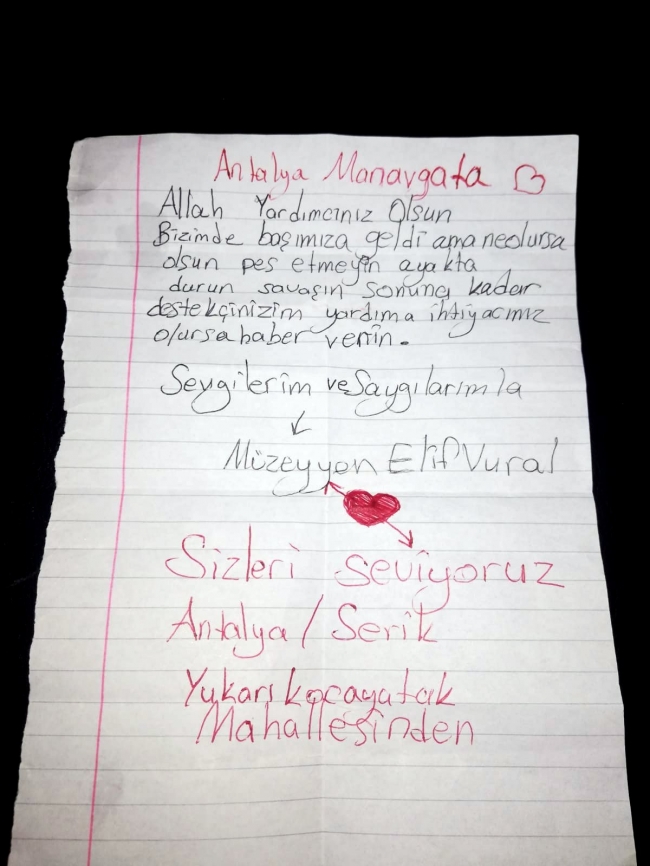 Antalya Manavgata
Allah Yardımcınız Olsun
Bizimde başımıza geldi ama neolursa
olsun pes etmeyin ayakta
durun savaşın sonuna kadar
destekçinizim yardıma ihtiyacınız
olursa haber verin.
Sevgilerim ve Saygılarımla
Müzeyyen Elif Vural
Sizleri seviyoruz
Antalya / Serik
Yukarı kocayatak
Mahallesinden